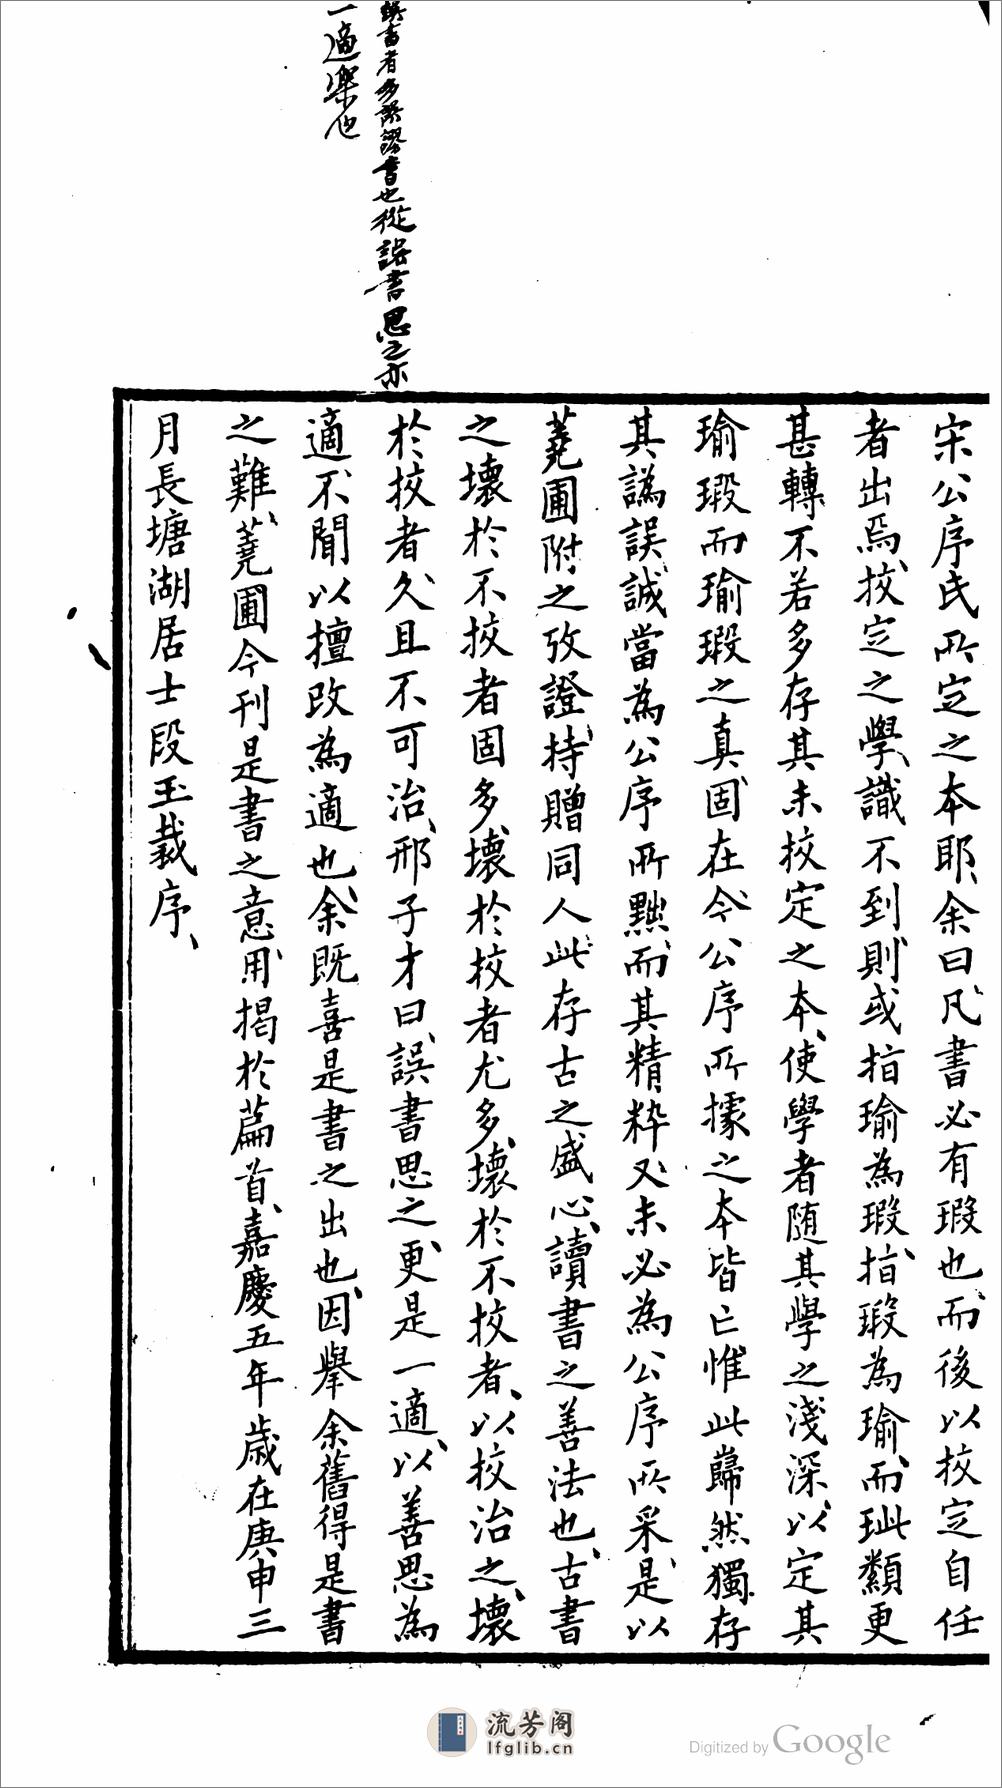 書者多
誤書思之亦
一適樂也
宋公序氏所定之本耶、余曰、凡書必有瑕也、而後以挍定自任
者出焉、挍定之學識不到、則或指瑜為瑕、指瑕為瑜、而玼纇更
甚、轉不若多存其未挍定之本、使學者隨其學之淺深、以定其
瑜瑕、而瑜瑕之真固在、今公序所據之本皆亡、惟此巋然獨存、
其譌誤誠當為公序所黜、而其精粹又未必為公序所采、是以
蕘圃附之攷證、持贈同人、此存古之盛心、讀書之善法也、古書
之壞於不挍者固多、壞於挍者尤多、壞於不挍者、以挍治之、壞
於挍者、久且不可治、邢子才曰、誤書思之、更是一適、以善思為
適、不聞以擅改為適也、余既喜是書之出也、因舉余舊得是書
之難、蕘圃今刊是書之意、用揭於篇首、嘉慶五年歲在庚申三
月長塘湖居士段玉裁序、
流芳阁
lfglib.cn
Digitized by Google